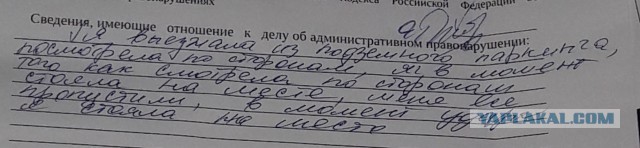 Российской Федерации
Сведения, имеющие отношение к делу об административном правонарушении:
Я выезжала из подземного паркинга,
посмотрела по сторонам, я в момент
того как смотрела по сторонам
стояла на месте, меня все
пропустили, в момент удара
я стояла на месте
YAPLAKAL.COM